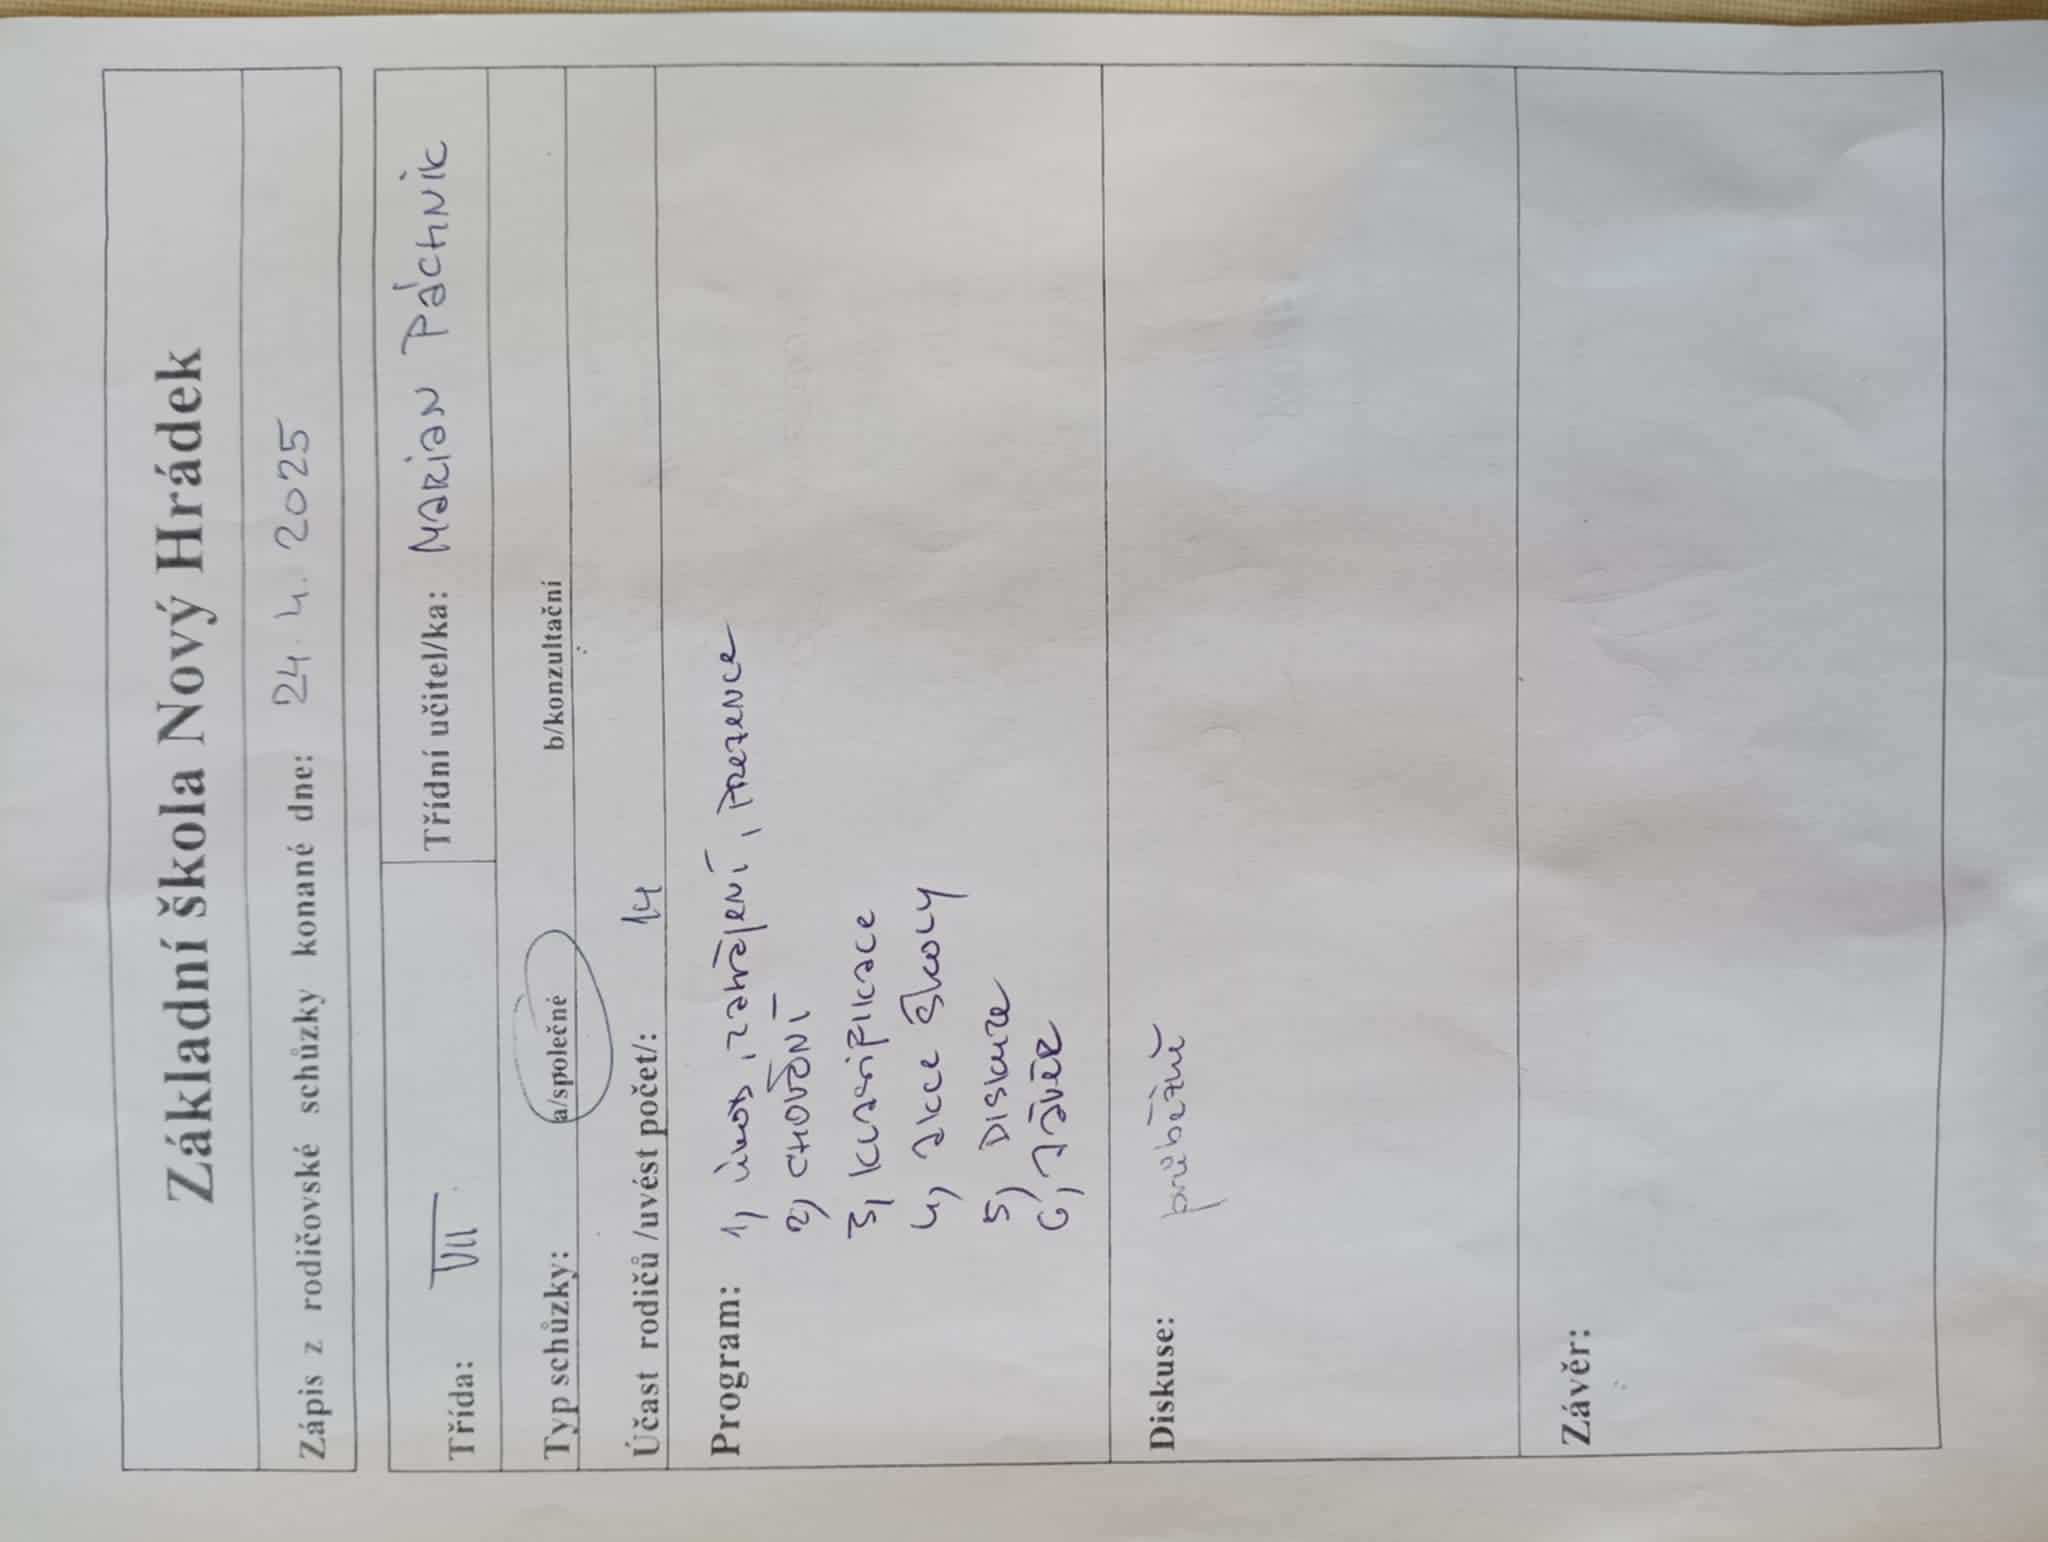 Základní škola Nový Hrádek
Zápis z rodičovské schůzky konané dne: 24. 4. 2025
Třída: VII. Třídní učitel/ka: MARIAN PÁCHNIK
Typ schůzky: a/společné b/konzultační
Účast rodičů /uvést počet/: 14
Program: 1, úvod, zahájení, prezence
2, CHOVÁNÍ
3, klasifikace
4, akce školy
5, Diskuze
6, závěr
Diskuse: průběžně
Závěr: